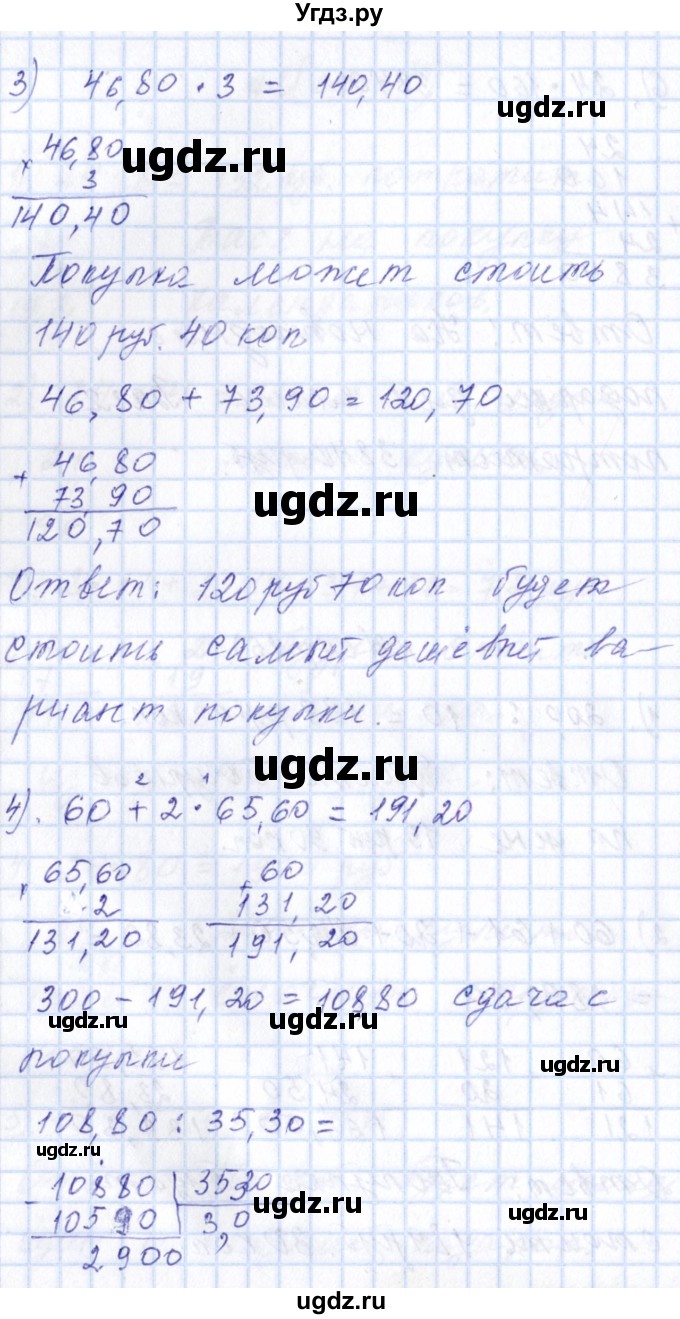 Угдз.ру
3) 46,80 · 3 = 140,40
ugdz.ru
× 46,80
3
140,40
ugdz.ru
Покупка может стоить
140 руб. 40 коп
46,80 + 73,90 = 120,70
+ 46,80
73,90
120,70
ugdz.ru
Ответ: 120 руб 70 коп будет
стоить самый дешёвый ва-
риант покупки.
ugdz.ru
2 1
4). 60 + 2 · 65,60 = 191,20
× 65,60
2
131,20
+ 60
131,20
191,20
300 - 191,20 = 10880 сдача с
ugdz.ru
ugdz.ru
покупки
ugdz.ru
108,80 : 35,30 =
ugdz.ru
- 10880
10590
2900
3530
3,0
ugdz.ru
ugdz.ru